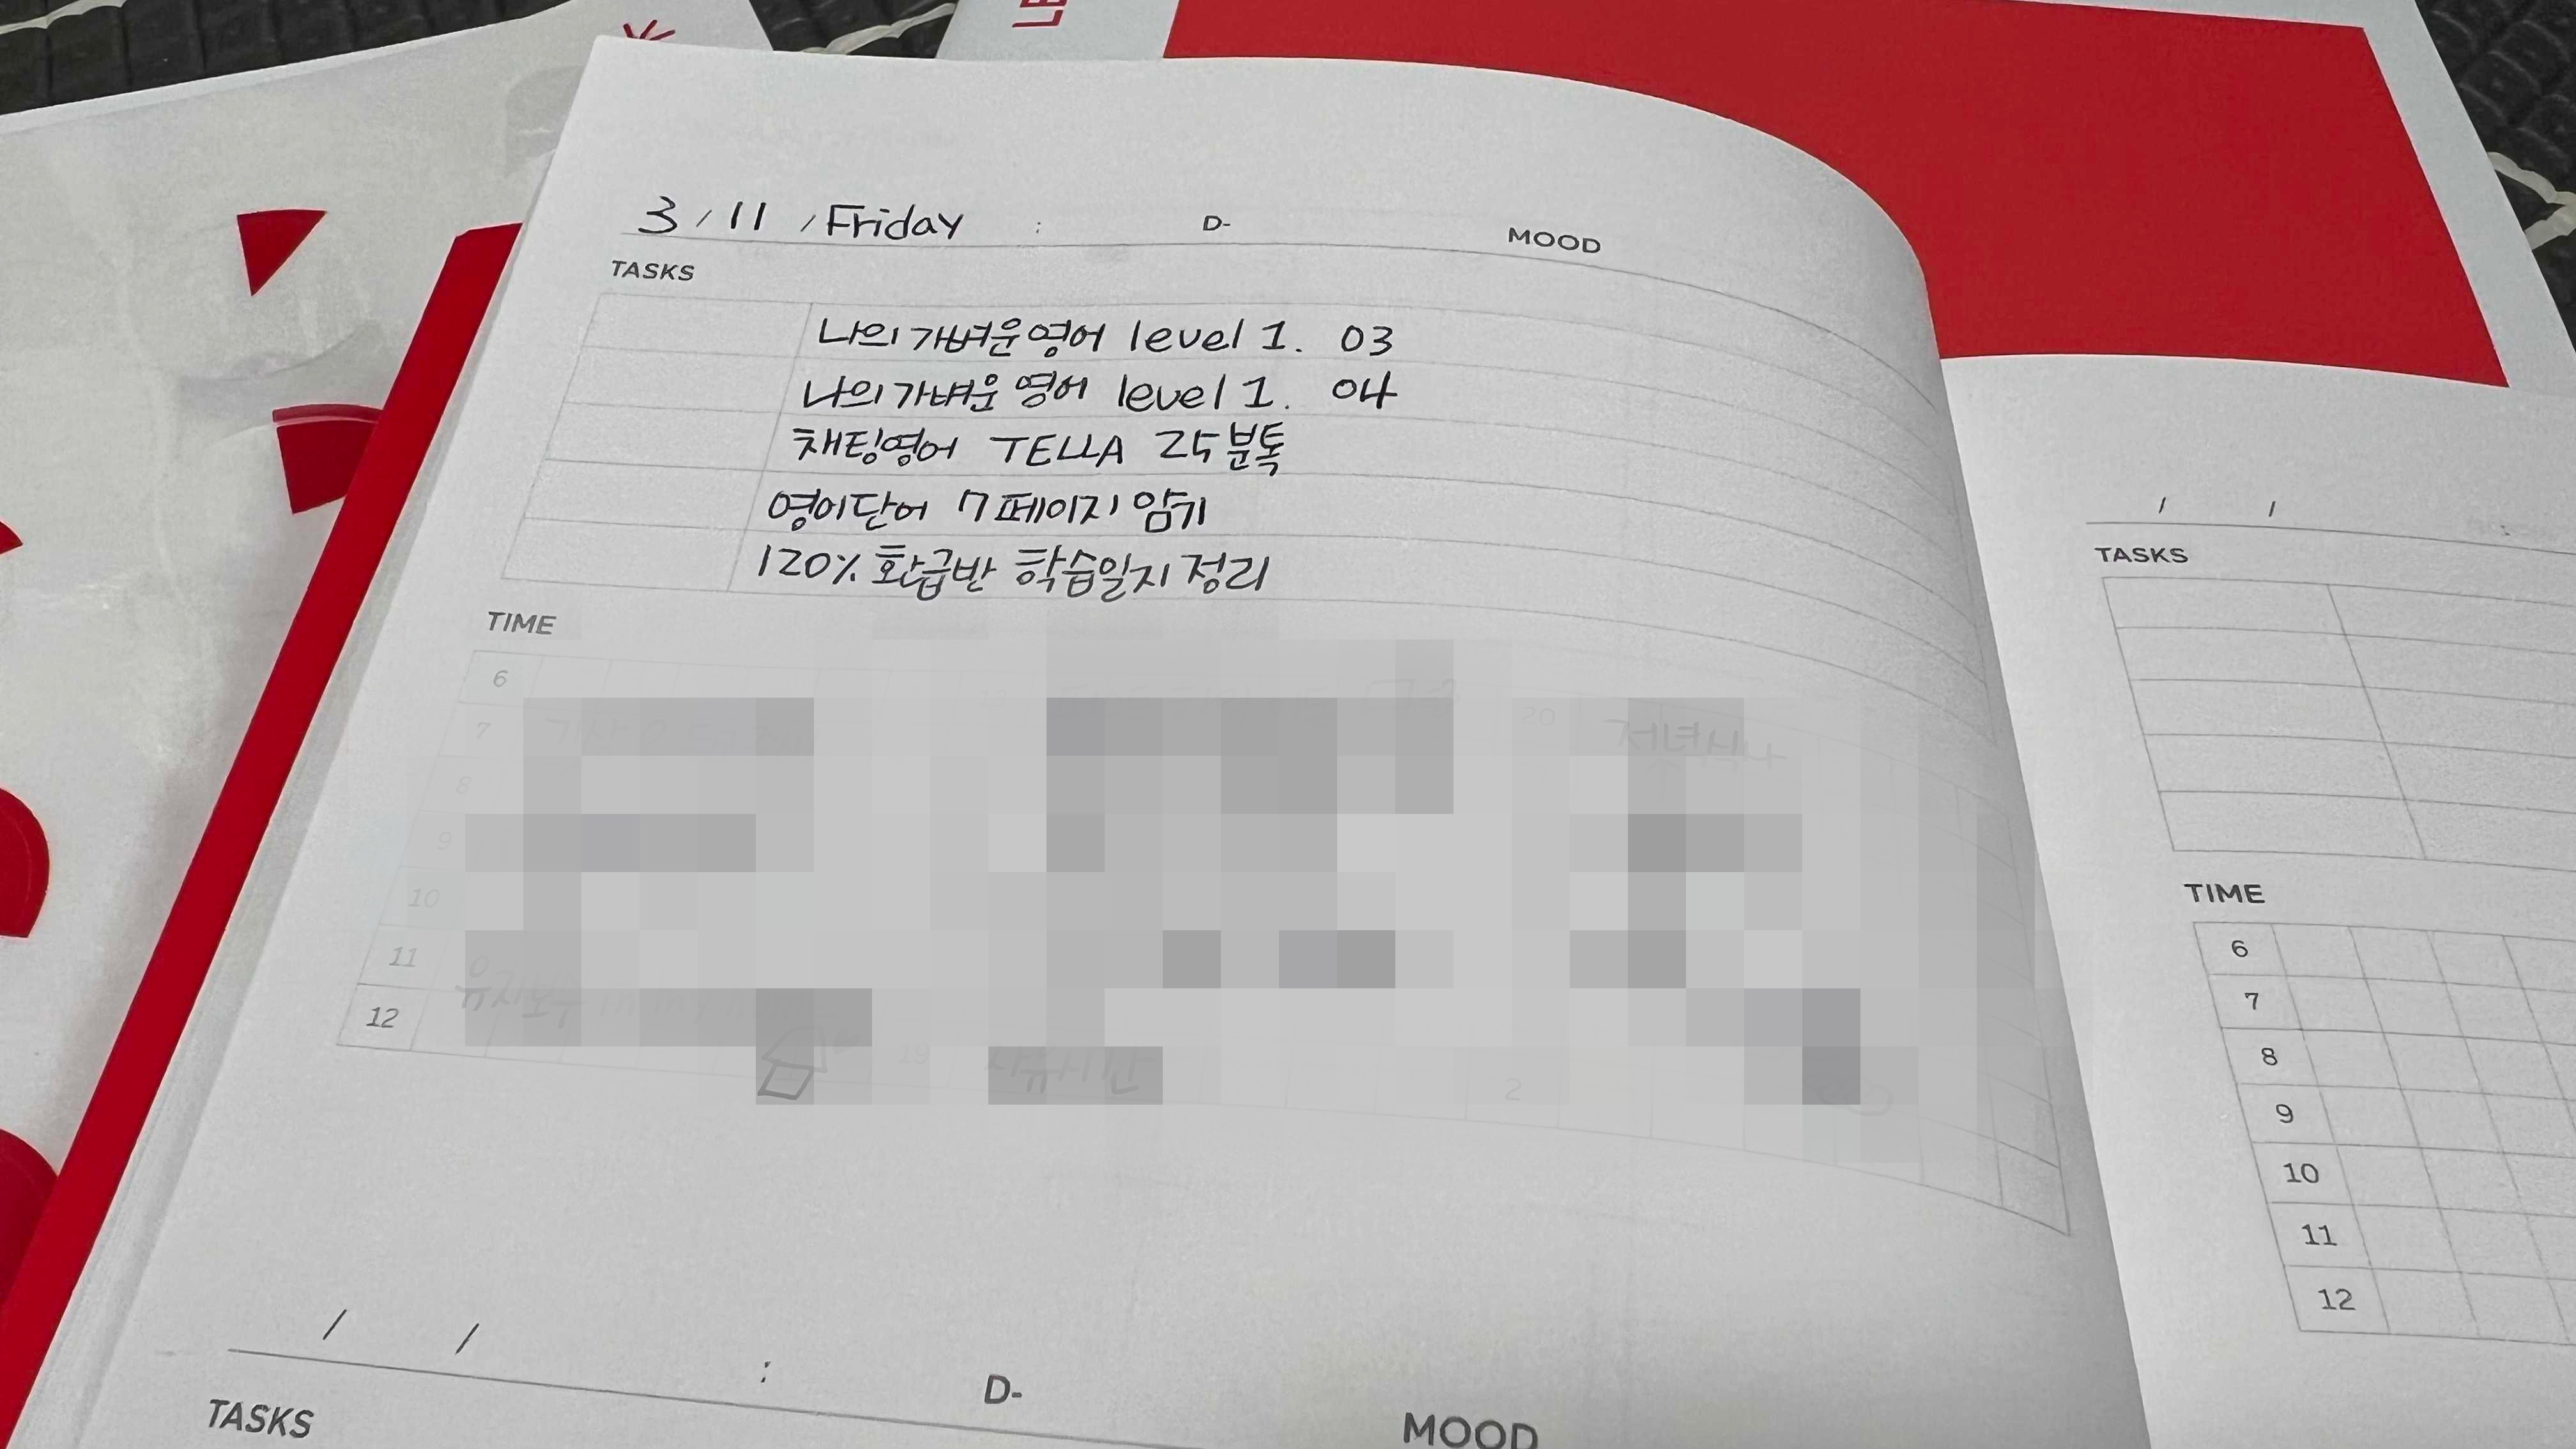 3 / 11 / Friday : D- MOOD
TASKS
나의 가벼운 영어 level 1. 03
나의 가벼운 영어 level 1. 04
채팅영어 TELLA 25분톡
영어단어 7페이지 암기
120% 환급반 학습일지 정리
TIME
6
7
8
9
10
11
12
20
저녁식사
19
자유시간
2
/ / : D- MOOD
TASKS
/ /
TASKS
TIME
6
7
8
9
10
11
12